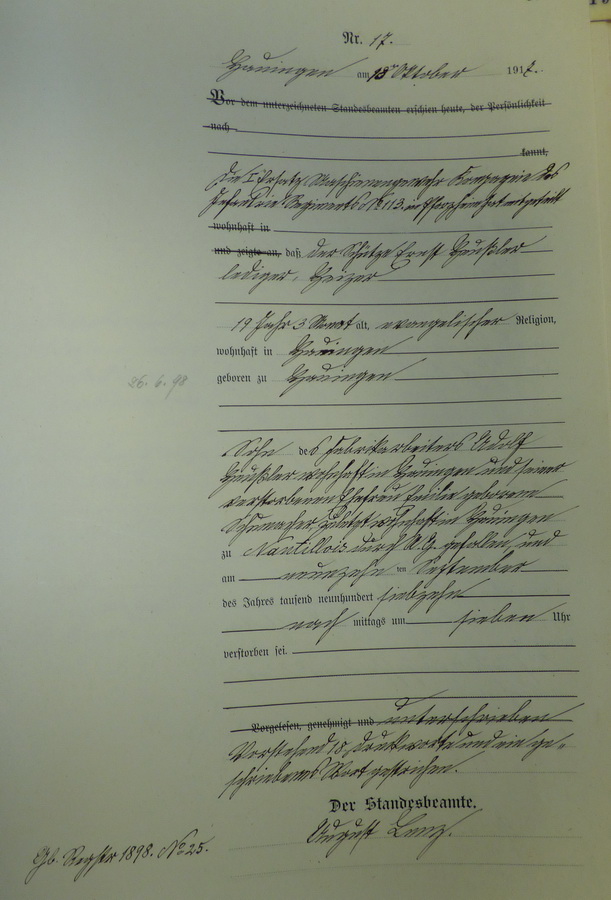 Nr. 17.
Hauingen am 13ten Oktober 1917.
Vor dem unterzeichneten Standesbeamten erschien heute, der Persönlichkeit
nach
kannt,
Die I Ersatz Maschinengewehr Kompagnie des
Infanterie Regiments No 113. in hat mitgeteilt
wohnhaft in
und zeigte an, daß der Schütze Ernst Häußler
lediger, Heizer
19 Jahr 3 Monat alt, evangelischer Religion,
wohnhaft in Hauingen
geboren zu Hauingen
26. 6. 98
Sohn des Fabrikarbeiters Adolf
Häußler wohnhaft in Hauingen und seiner
verstorbenen Ehefrau geborene
Schumacher, zuletzt wohnhaft in Hauingen
zu Nantillois durch A. G. gefallen und
am neunzehn ten September
des Jahres tausend neunhundert siebzehn
nach mittags um sieben Uhr
verstorben sei.
Vorgelesen, genehmigt und unterschrieben
Vorstehend 18 Druckworte und ein ge-
schriebenes Wort gestrichen.
Der Standesbeamte.
August Lenz.
Gb. Regstr 1898. No 25.